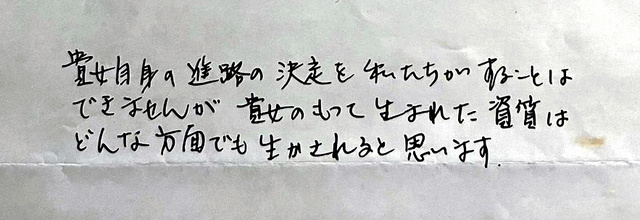 貴女自身の進路の決定を私たちがすることは
できませんが貴女のもって生まれた資質は
どんな方面でも生かされると思います.